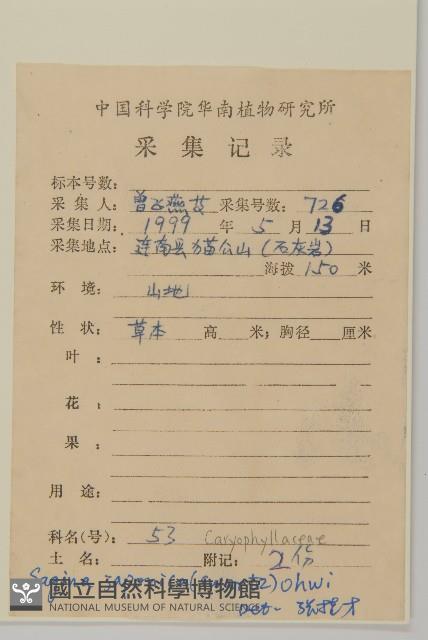 中国科学院华南植物研究所
采集记录
标本号数：
采集人：曾飞燕 采集号数：726
采集日期：1999 年 5 月 13 日
采集地点：连南县猫公山（石灰岩）
海拨 150 米
环境：山地
性状：草本 高 米；胸径 厘米
叶：
花：
果：
用途：
科名(号)：53 Caryophyllaceae
土名： 附记：2份
Sagina japonica (Swartz) Ohwi
國立自然科學博物館
NATIONAL MUSEUM OF NATURAL SCIENCE
Det.